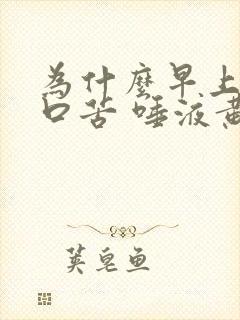 為什麼早上
口苦 唾液黃
荚皂鱼